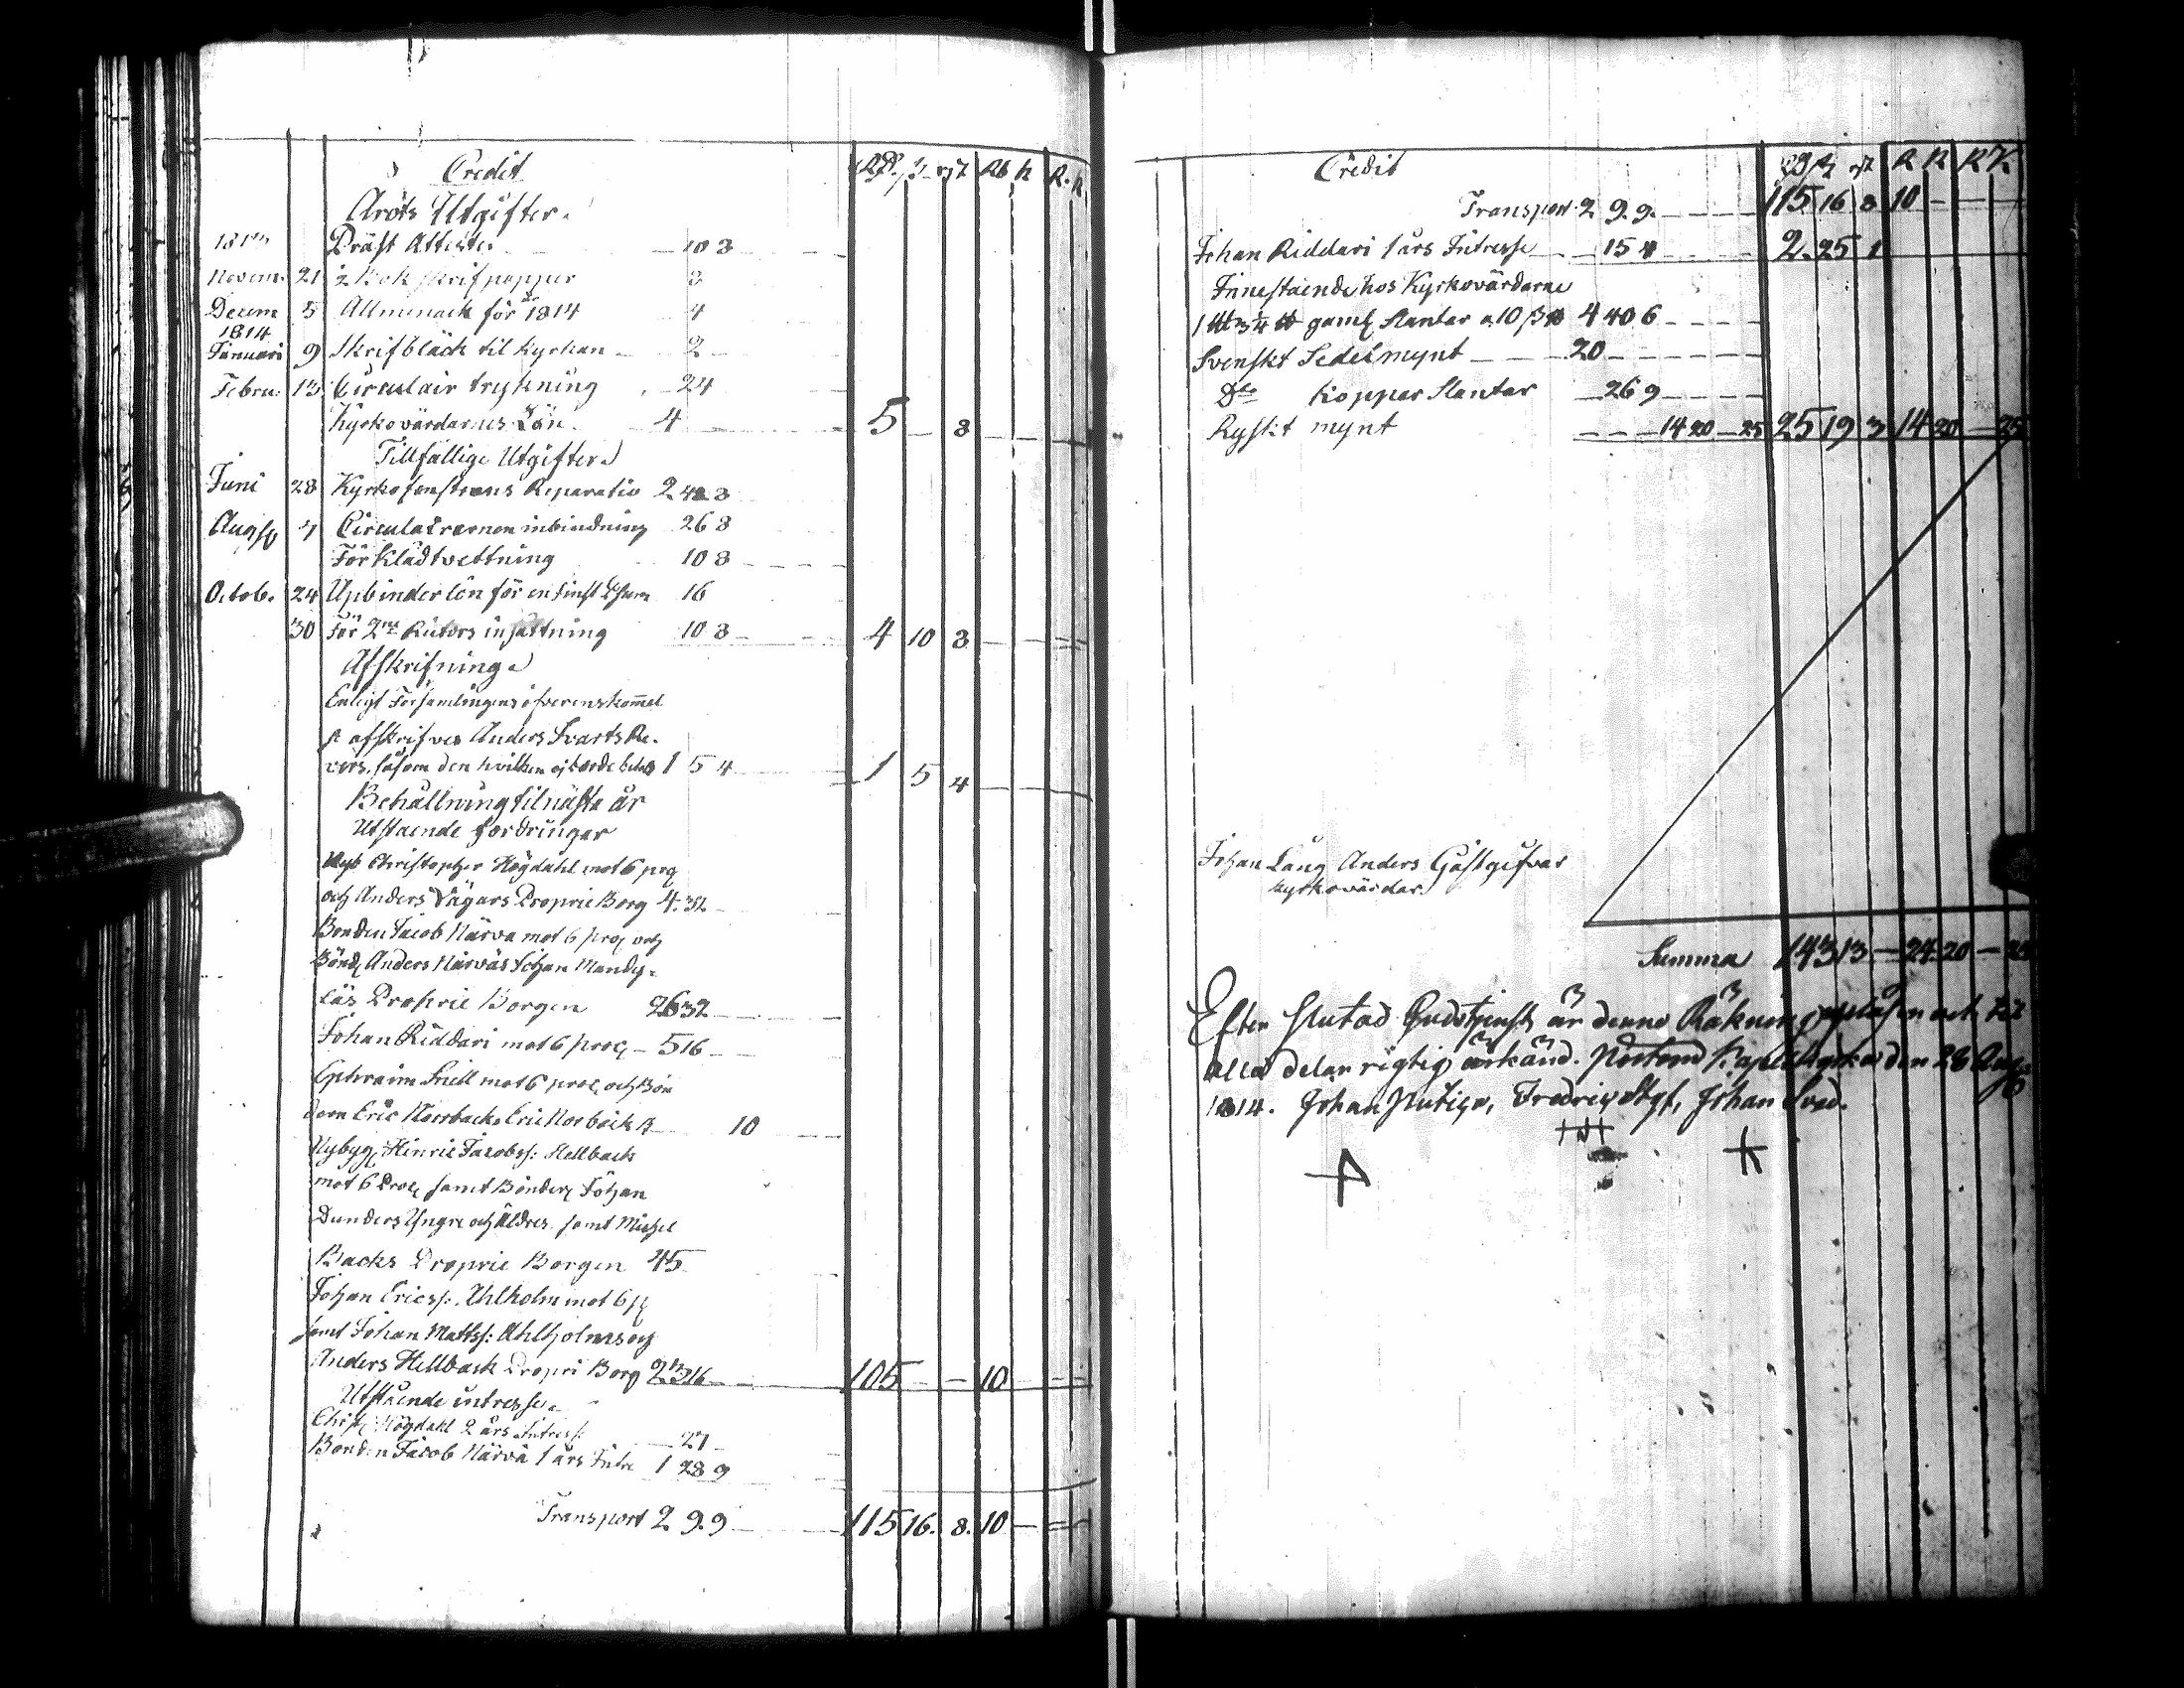 Credit Rd. ß rst Rb k R. k
Årets Utgifter.
1813 Präst Attester 10 8
Novem. 21 ½ Bok skrifpapper 8
Decem 5 Allmanack för år 1814 4
1814
Januari 9 Skrifbläck til Kyrkan 2
Febru. 13 Circulair trykning 24
Kyrkovärdarnes Lön 4 5 8
Tillfällige Utgifter
Juni 28 Kyrkofenstrens Reparatio 2 42 8
Augst 7 Circulairernen inbindning 26 8
För Klädtvettning 10 8
Octob. 24 Upbinder lön för en
30 För 2ne Rutors insättning 10 8 4 10 8
Afskrifning
Enligt Församlingens öfverenskommel
se afskrifves Anders Svarts Re-
vers, såsom den hvilken ej borde 1 5 4 1 5 4
Behållning til nästa år
Utstående fordringar
Nyb Christopher Högdahl mot 6 prc
och Anders Vägars Proprie Borg 4. 32
Bonden Jacob Närva mot 6 proc och
Bönd. Anders Närväs Johan Mandy-
läs Proprie Borgen 26 32
Johan Riddari mot 6 proc 5 16
Ephraim Snell mot 6 proc och Bön
dern Eric Norrbacks Eric Norback B 10
Nybyg. Hinric Jacobss: Hellbacks
mot 6 Proc samt Bönder Johan
Dunders Yngre och Äldres samt Michel
Backs Proprie Borgen 45
Johan Ericss: Ahlholm mot 6 p
samt Johan Mattss: Ahlholms och
Anders Hellback Propri Borg 23 16 105 10
Utstående intresse.
Christ. Högdahl 2 års Intresse 27
Bonden Jacob Närvä 1 års Intre 1 28 9
Transport 2 9. 9 115 16. 8. 10
Credit Rd ß rst R k R K
Transport 2 9. 9. 115 16 8 10
Johan Riddari 1 års Intresse 15 4 2. 25 1
Innestående hos Kyrkovärdarne
gaml. Slantar a 10 ß 4 40 6
Svenskt Sedelmynt 20
Dto Koppar Slantar 26 9
Ryskt mynt 14 20 25 25 19 3 14 20 25
Johan Lång Anders Gästgifvar
kyrkovärdar
Summa 143 13 24 20
Efter slutad Gudstjenst är denna Räkning upläsen och til
alla delar rigtig ärkänd. Kapellkyrka den 28 Aug
1814. Johan Fredric Johan Svad.